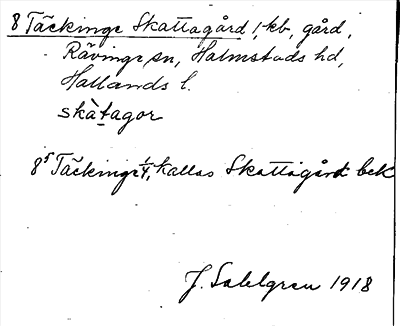 8 Täckinge Skattagård 1, kb, gård,
Rävinge sn, Halmstads hd,
Hallands l.
skàtagor
8⁵ Täckinge 1/4, kallas Skattagård bek
J. Sahlgren 1918